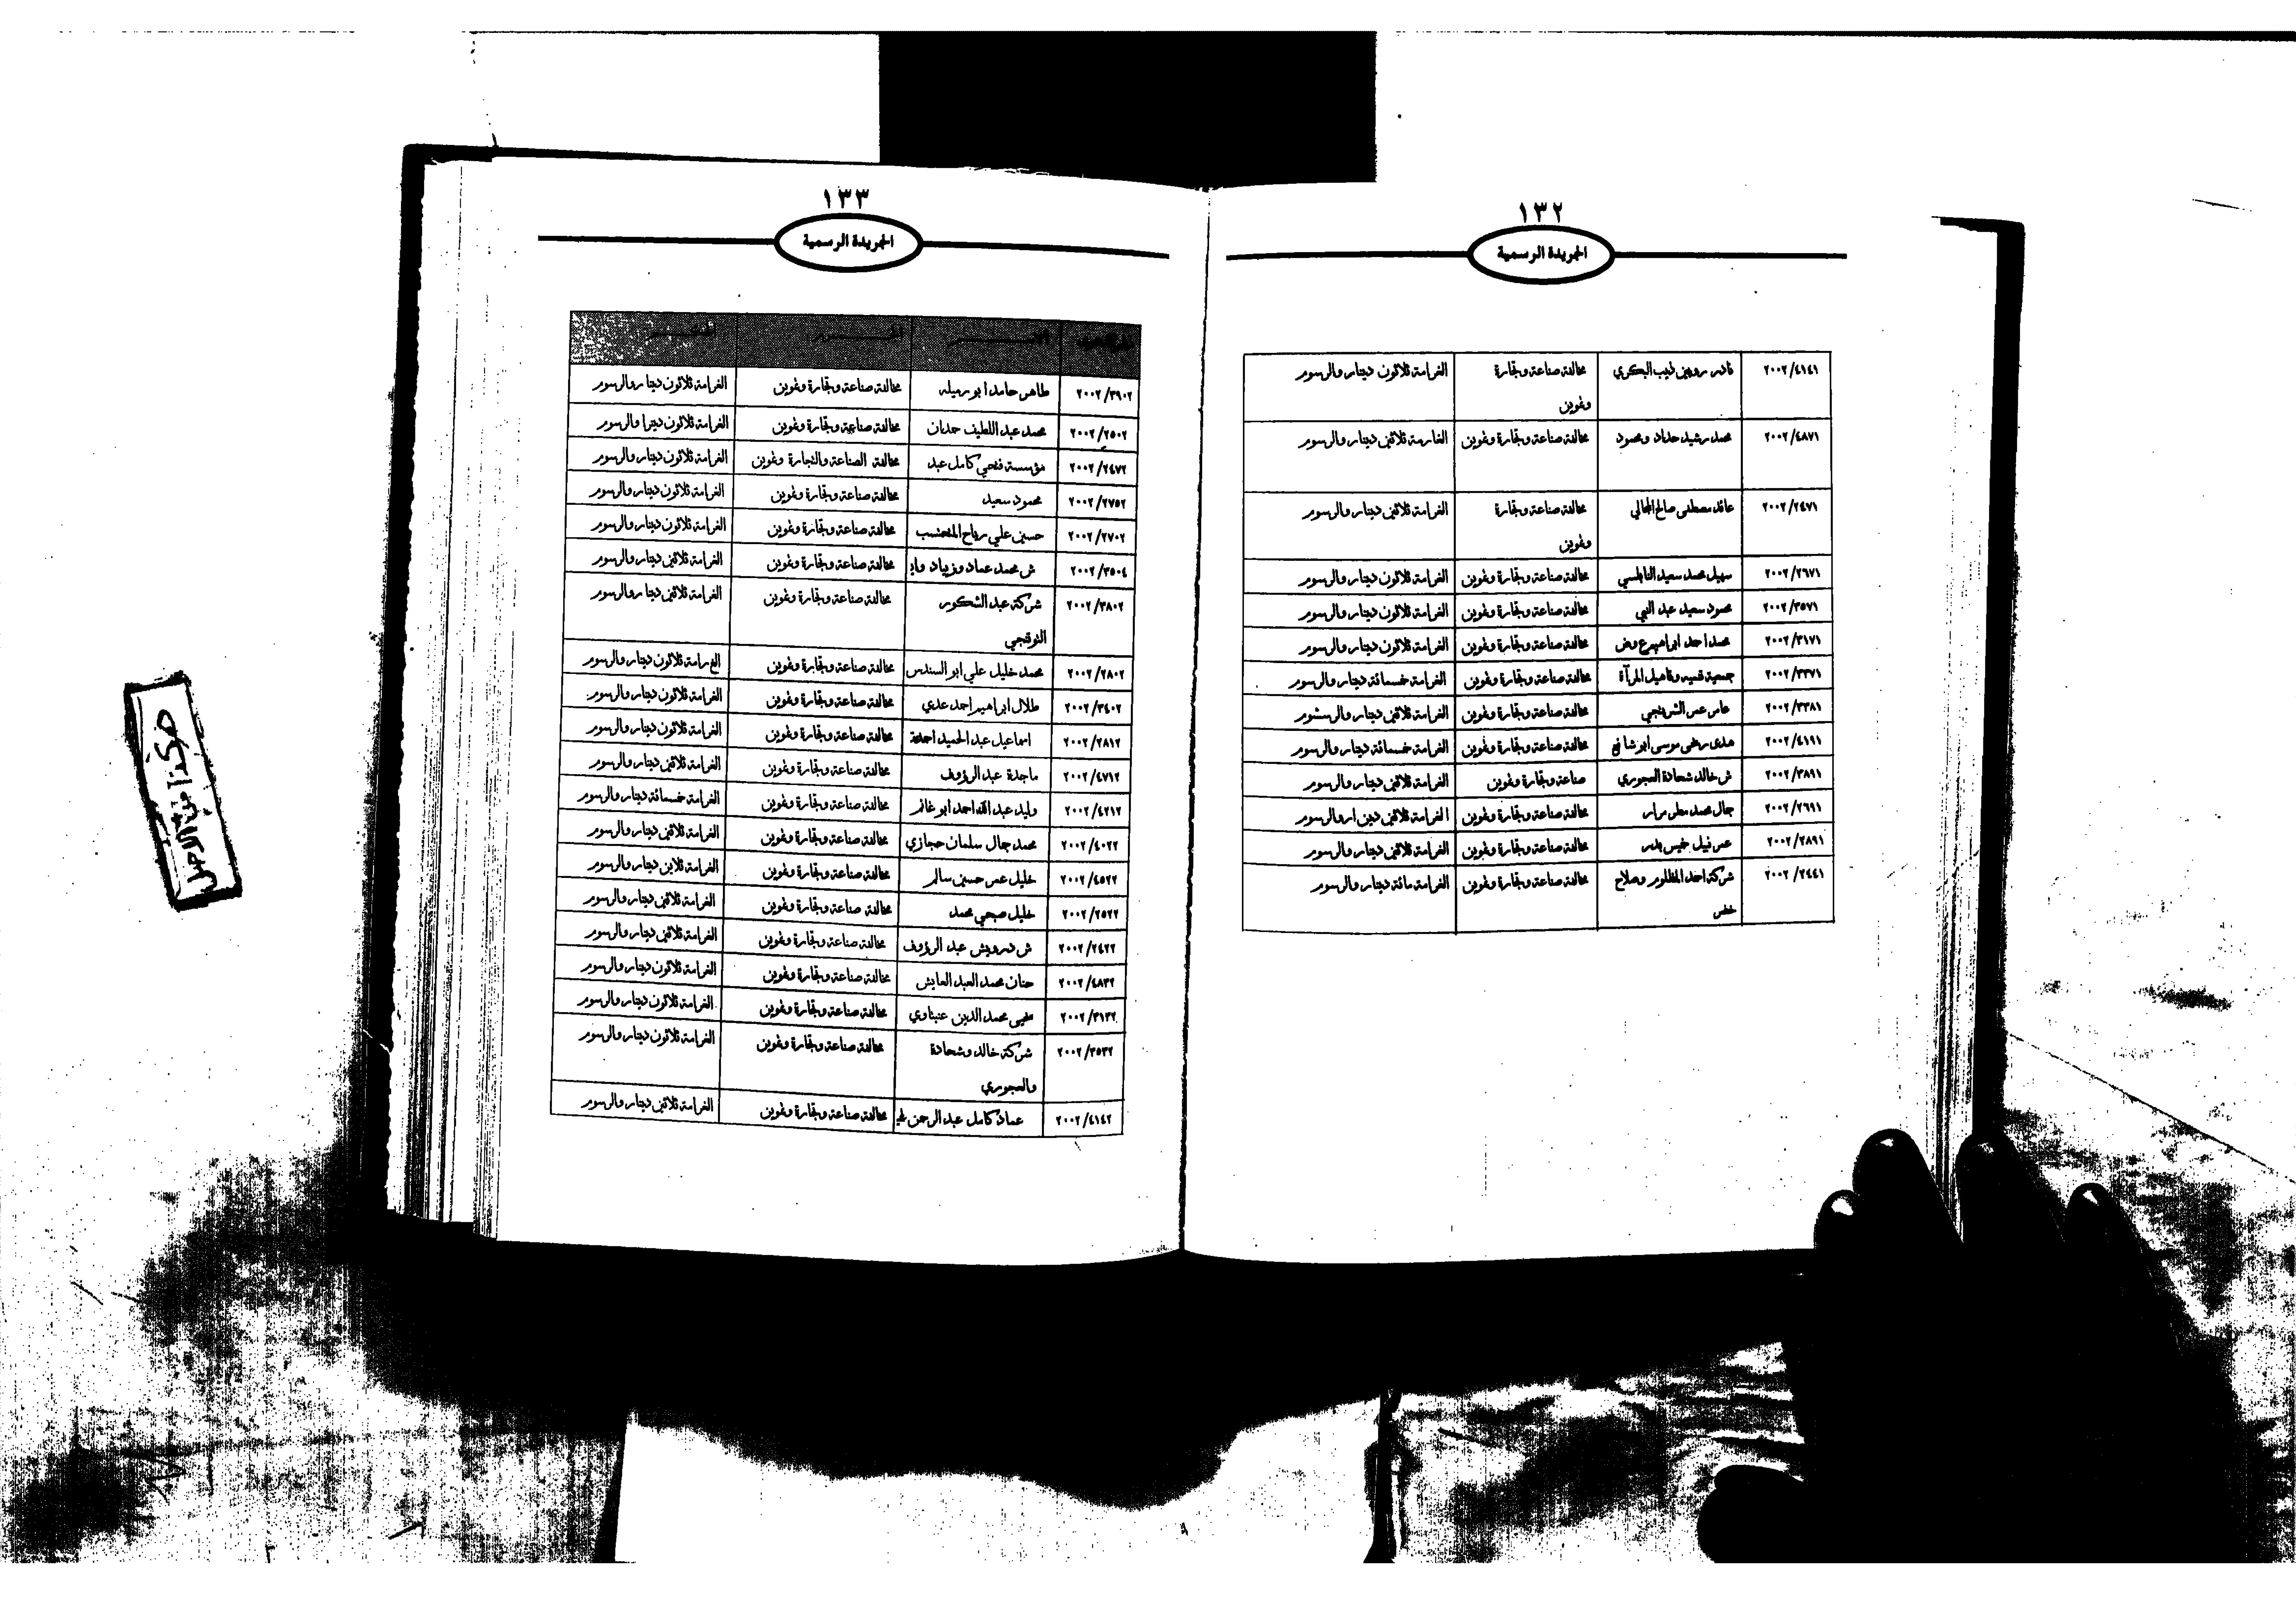 ١٣٢
الجريدة الرسمية
٢٠٠٢/٤١٤١ نادر روبين ذيب البكري مخالفة صناعة وتجارة الغرامة ثلاثون دينار والرسوم
وتموين
٢٠٠٢/٤٨٧١ محمد رشيد حداد ومحمود مخالفة صناعة وتجارة وتموين الغارمة ثلاثين دينار والرسوم
٢٠٠٢/٢٤٧١ عائد مصطفى صالح المجالي مخالفة صناعة وتجارة الغرامة ثلاثين دينار والرسوم
وتموين
٢٠٠٢/٢٦٧١ سهيل محمد سعيد النابلسي مخالفة صناعة وتجارة وتموين الغرامة ثلاثين دينار والرسوم
٢٠٠٢/٣٥٧١ محمود سعيد عبد النبي مخالفة صناعة وتجارة وتموين الغرامة ثلاثون دينار والرسوم
٢٠٠٢/٣١٧١ محمد احمد ابراهيم عوض مخالفة صناعة وتجارة وتموين الغرامة ثلاثون دينار والرسوم
٢٠٠٢/٣٣٧١ جمعية تنمية وتاهيل المرآة مخالفة صناعة وتجارة وتموين الغرامة خمسمائة دينار والرسوم
٢٠٠٢/٣٣٨١ عامر عمر الشربجي مخالفة صناعة وتجارة وتموين الغرامة ثلاثين دينار والرسشوم
٢٠٠٢/٤١٩١ هدى رضى موسى ابو شافع مخالفة صناعة وتجارة وتموين الغرامة خمسمائة دينار والرسوم
٢٠٠٢/٣٨٩١ ش خالد شحادة العجوري صناعة وتجارة وتموين الغرامة ثلاثين دينار والرسوم
٢٠٠٢/٢٦٩١ جمال محمد مطر مرار مخالفة صناعة وتجارة وتموين الغرامة ثلاثين دين اروالرسوم
٢٠٠٢/٢٨٩١ عمر نبيل خميس بدر مخالفة صناعة وتجارة وتموين الغرامة ثلاثين دينار والرسوم
٢٠٠٢/٢٤٤١ شركة احمد المظلوم وصلاح مخالفة صناعة وتجارة وتموين الغرامة مائة دينار والرسوم
خضر
١٣٣
الجريدة الرسمية
٢٠٠٢/٣٩٠٢ طاهر حامد ابو رميله مخالفة صناعة وتجارة وتموين الغرامة ثلاثون دينا روالرسوم
٢٠٠٢/٢٥٠٢ محمد عبد اللطيف حمدان مخالفة صناعة وتجارة وتموين الغرامة ثلاثون دينرا والرسوم
٢٠٠٢/٢٤٧٢ مؤسسة فتحي كامل عبد مخالفة الصناعة والتجارة وتموين الغرامة ثلاثون دينار والرسوم
٢٠٠٢/٢٧٥٢ محمود سعيد مخالفة صناعة وتجارة وتموين الغرامة ثلاثون دينار والرسوم
٢٠٠٢/٢٧٠٢ حسين علي رباح المحتسب مخالفة صناعة وتجارة وتموين الغرامة ثلاثون دينار والرسوم
٢٠٠٢/٣٥٠٤ ش محمد عماد وزياد واي مخالفة صناعة وتجارة وتموين الغرامة ثلاثين دينار والرسوم
٢٠٠٢/٣٨٠٢ شركة عبد الشكور مخالفة صناعة وتجارة وتموين الغرامة ثلاثين دينا روالرسوم
التوقجي
٢٠٠٢/٢٨٠٢ محمد خليل علي ابو السندس مخالفة صناعة وتجارة وتموين الغرامة ثلاثون دينار والرسوم
٢٠٠٢/٣٤٠٢ طلال ابراهيم احمد عدي مخالفة صناعة وتجارة وتموين الغرامة ثلاثون دينار والرسوم
٢٠٠٢/٢٨١٢ اسماعيل عبد الحميد مخالفة صناعة وتجارة وتموين الغرامة ثلاثون دينار والرسوم
٢٠٠٢/٤٧١٢ ماجدة عبد الرؤوف مخالفة صناعة وتجارة وتموين الغرامة ثلاثين دينار والرسوم
٢٠٠٢/٤٢١٢ وليد عبد الله احمد ابو غانم مخالفة صناعة وتجارة وتموين الغرامة خمسمائة دينار والرسوم
٢٠٠٢/٤٠٢٢ محمد جمال سلمان حجازي مخالفة صناعة وتجارة وتموين الغرامة ثلاثين دينار والرسوم
٢٠٠٢/٤٥٢٢ خليل عمر حسين سالم مخالفة صناعة وتجارة وتموين الغرامة ثلاين دينار والرسوم
٢٠٠٢/٢٥٢٢ خليل صبحي محمد مخالفة صناعة وتجارة وتموين الغرامة ثلاثين دينار والرسوم
٢٠٠٢/٢٤٢٢ ش درويش عبد الرؤوف مخالفة صناعة وتجارة وتموين الغرامة ثلاثين دينار والرسوم
٢٠٠٢/٤٨٣٢ حنان محمد العبد العايش مخالفة صناعة وتجارة وتموين الغرامة ثلاثون دينار والرسوم
٢٠٠٢/٣١٣٢ محمد الدين عنبتاوي مخالفة صناعة وتجارة وتموين الغرامة ثلاثون دينار والرسوم
٢٠٠٢/٣٥٣٢ شركة خالد وشحادة مخالفة صناعة وتجارة وتموين الغرامة ثلاثون دينار والرسوم
والعجوري
٢٠٠٢/٤١٤٢ عماد كامل عبد الرحمن مخالفة صناعة وتجارة وتموين الغرامة ثلاثين دينار والرسوم
هكذا من الأصل